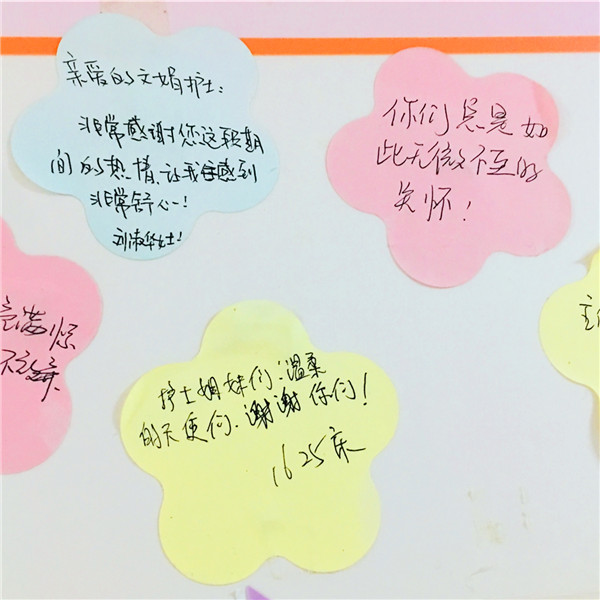 亲爱的文娟护士:
非常感谢您这段期
间的热情,让我感到
非常舒心!
刘淑华女士!
你们总是如
此无微不至的
关怀!
护士姐妹们:温柔
的天使们.谢谢你们!
1625床